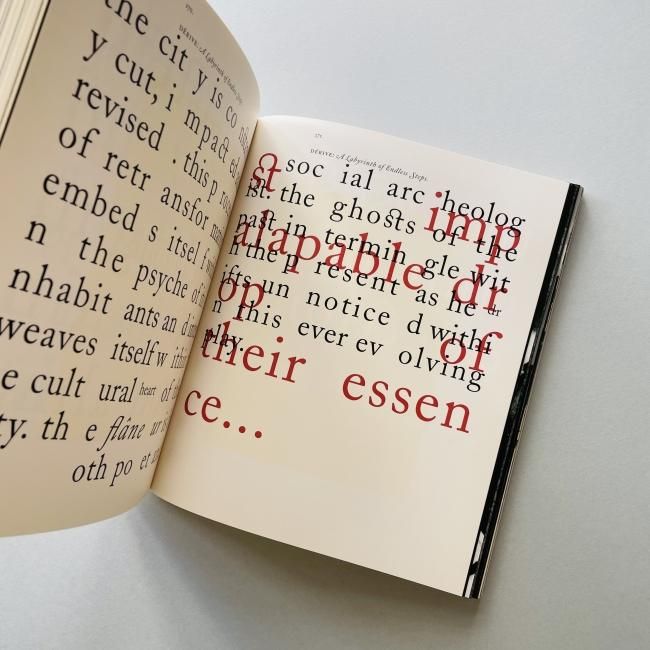 DÉRIVE: A Labyrinth of Endless Steps.
the cit y is co
y cut, i mpact ed
revised . this p roc
of retr ansfor
embed s itsel f
n the psyche of
nhabit ants an d
weaves itself w ithin
e cult ural heart of
ty. th e flâne ur is
oth po et
271.
DÉRIVE: A Labyrinth of Endless Steps.
soc ial arc heolog
ist. the ghosts of the
past in termin gle wit
h the p resent as he dr
ifts un notice d withi
n this ever ev olving
play.
st imp
alapable dr
op of
their essen
ce...